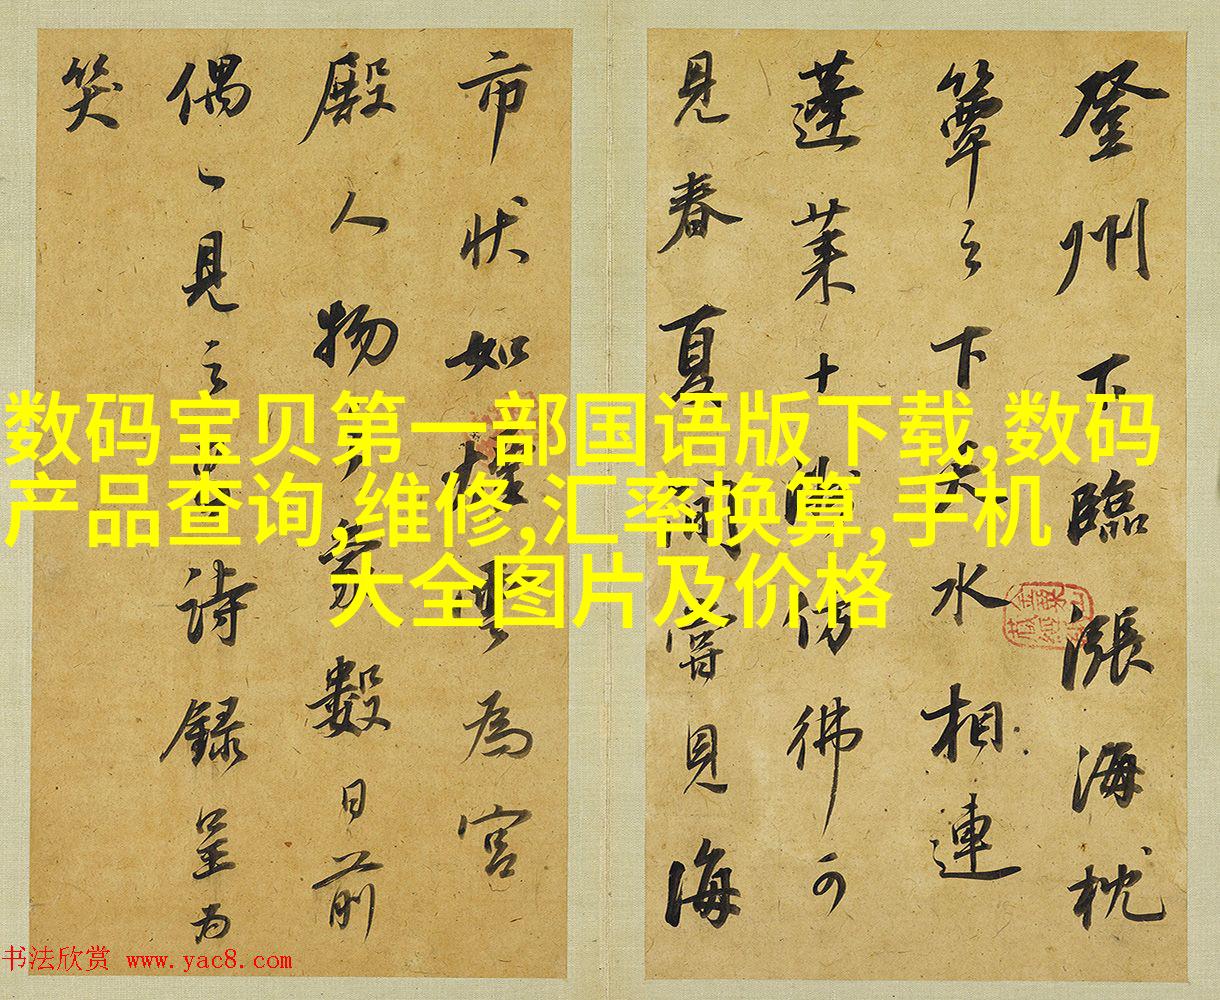 登州下臨漲海枕
簟之下天水相連
蓬莱十洲仿彿可
見春夏間常見海
市状如為宫
殿人物象數日前
偶見之詩録呈为
笑
数码宝贝第一部国语版下载,数码
产品查询,维修,汇率换算,手机
大全图片及价格
书法欣赏 www.yac8.com